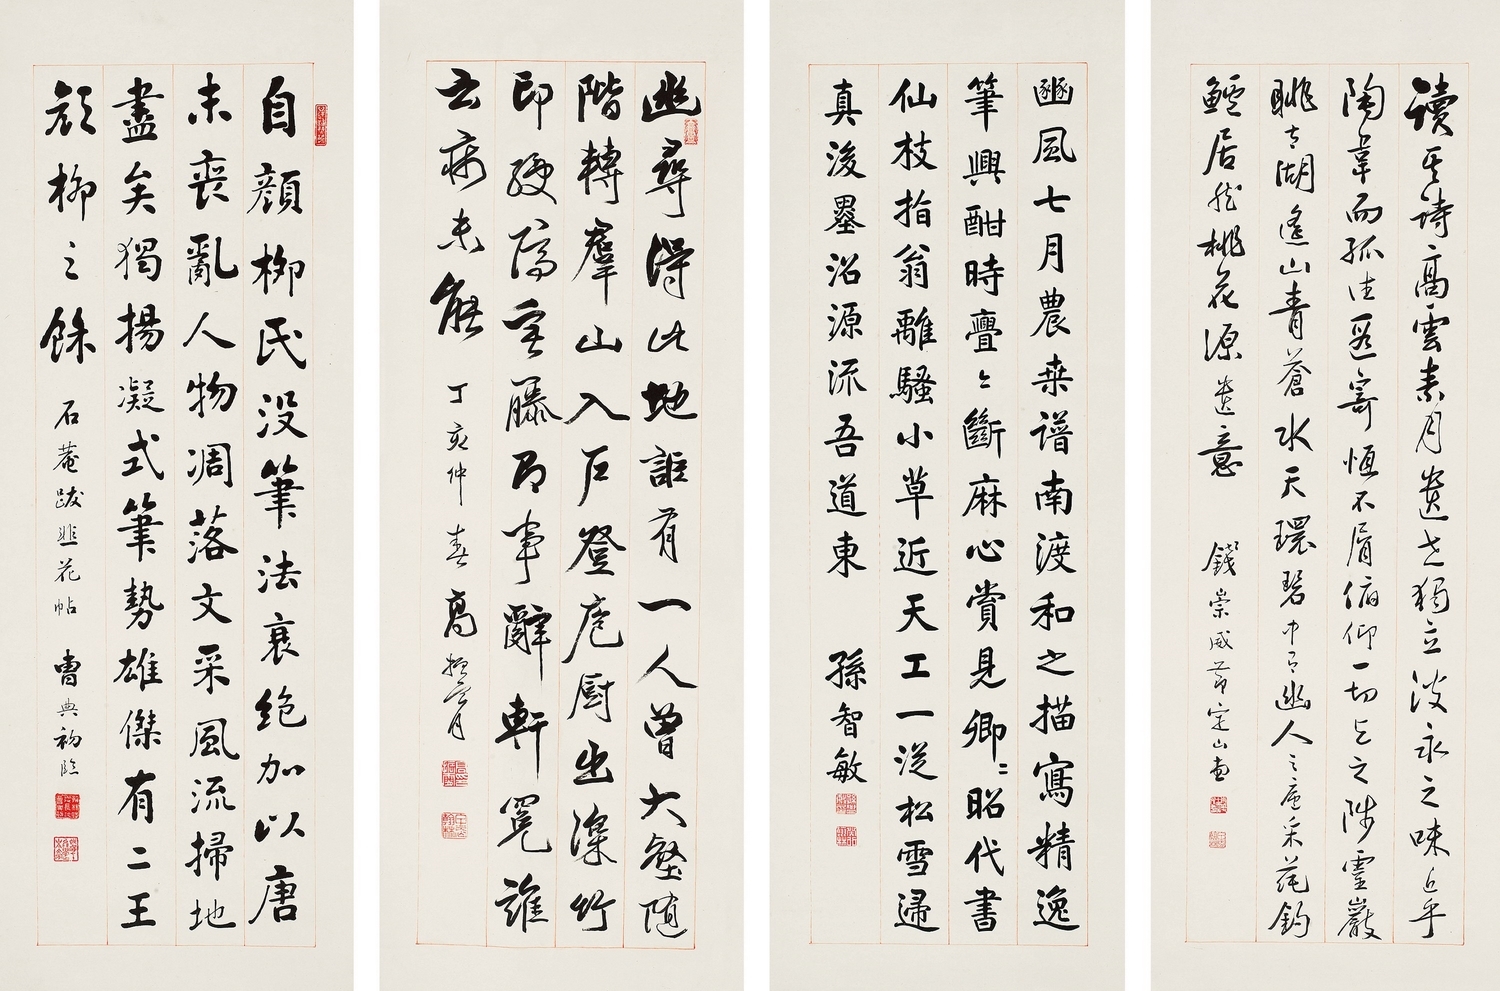 讀其詩高雲素月遺世獨立淡永之味近乎
陶韋而孤往遐寄恆不屑俯仰一切與之陟靈巖
眺太湖遙山青蒼水天環碧中有幽人之廬采蓴釣
鱸居然桃花源遺意 錢崇威節定山畫
豳風七月農桑譜南渡和之描寫精逸
筆興酣時疊々斷麻心賞見卿々昭代書
仙枝指翁離騷小草近天工一從松雪歸
真後墨沼源流吾道東 孫智敏
幽尋得此地詎有一人曾大壑隨
階轉羣山入戶登庖廚出深竹
印綬隔寒藤即事辭軒冕誰
云病未能 丁亥仲春 高振霄
自顏柳氏沒筆法衰絕加以唐
末喪亂人物凋落文采風流掃地
盡矣獨揚凝式筆勢雄傑有二王
顏柳之餘 石菴跋韭花帖 曹典初臨